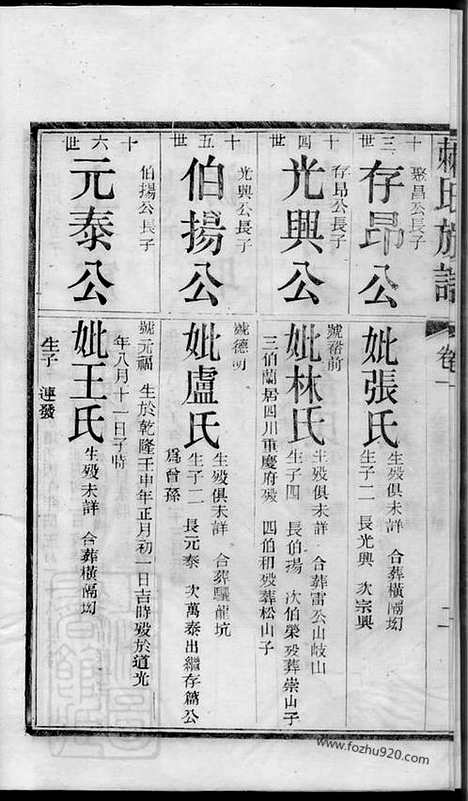 賴氏族譜
卷一
十三世
聚昌公長子
存昂公
妣張氏
生歿俱未詳 合葬橫隔㘭
生子二 長光興 次宗興
十四世
存昂公長子
光興公
號裕前
妣林氏
生歿俱未詳 合葬雷公山岐山
生子四 長伯揚 次伯榮歿葬崇山子
三伯蘭居四川重慶府歿 四伯和歿葬松山子
十五世
光興公長子
伯揚公
號德明
妣盧氏
生歿俱未詳 合葬驪龍坑
生子二 長元泰 次萬泰出繼存篇公
爲曾孫
十六世
伯揚公長子
元泰公
號元福 生於乾隆壬申年正月初一日吉時歿於道光
年八月十一日子時
妣王氏
生歿未詳 合葬橫隔㘭
生子 連發
www.fozhu920.com